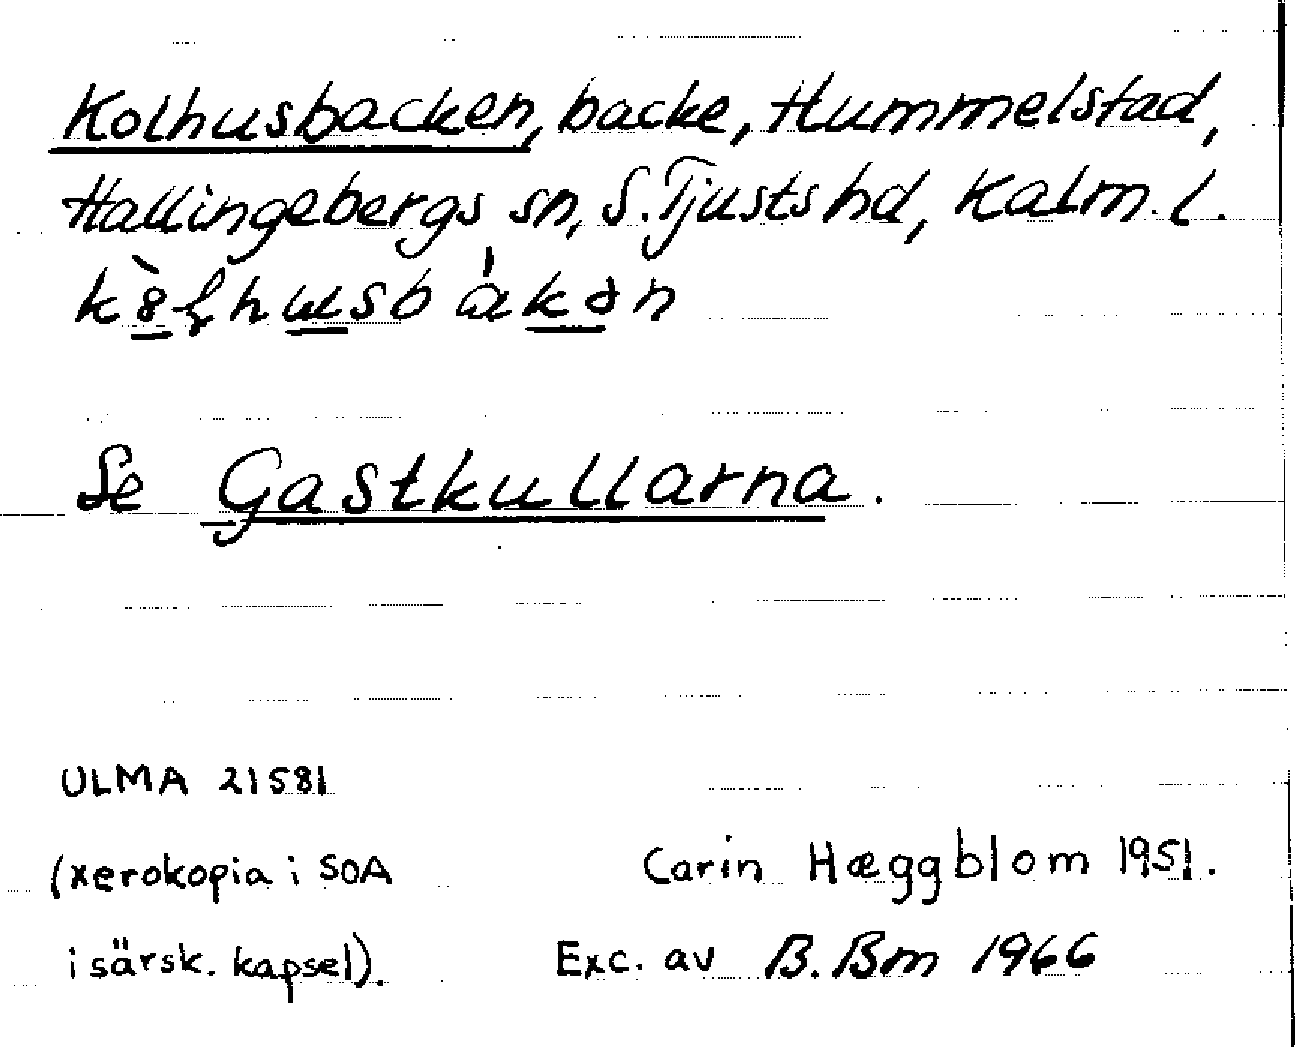 Kolhusbacken, backe, Hummelstad,
Hallingebergs sn, S. Tjusts hd, Kalm. l.
Se Gastkullarna.
ULMA 21581
(xerokopia i SOA
i särsk. kapsel).
Carin Hæggblom 1951.
Exc. av B. Bm 1966